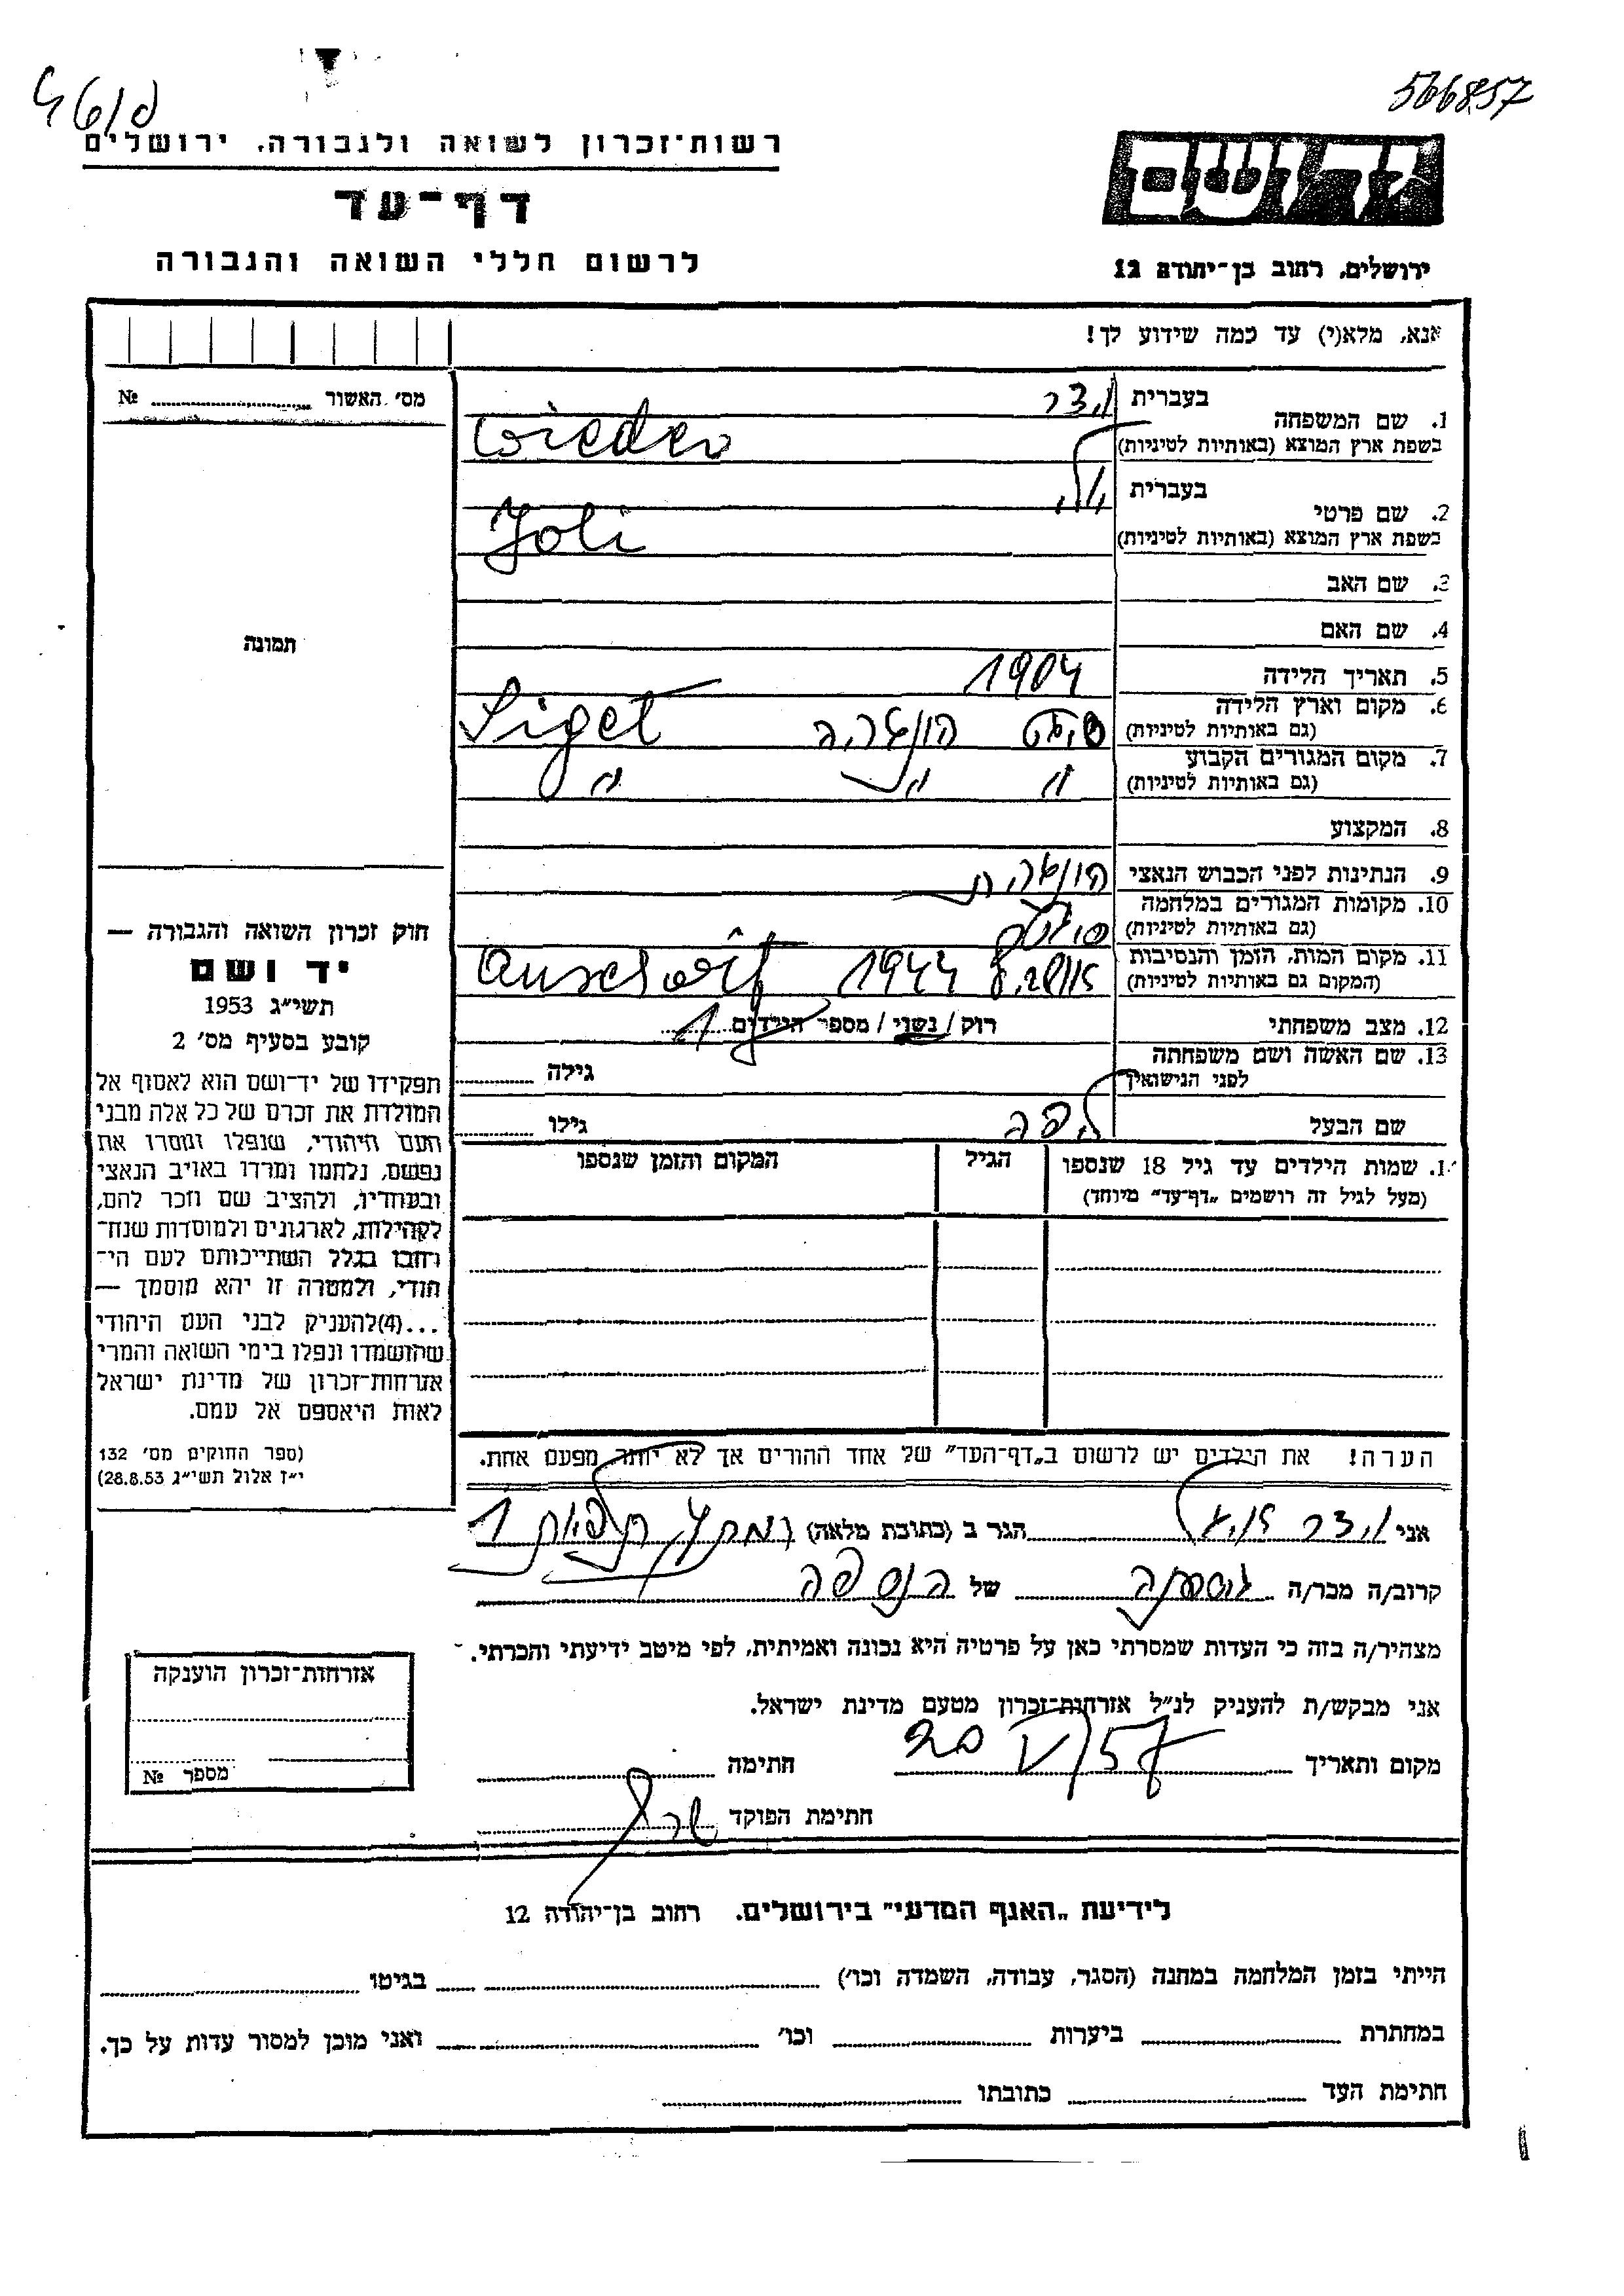 566857
רשות-זכרון לשואה ולגבורה, ירושלים
דף-עד
לרשום חללי השואה והגבורה
ירושלים, רחוב בן-יהודה 12
אנא, מלא(י) עד כמה שידוע לך!
מס׳ האשור № 
1. שם המשפחה
בעברית וידר
בשפת ארץ המוצא (באותיות לטיניות) Wieder
2. שם פרטי
בעברית יולי
בשפת ארץ המוצא (באותיות לטיניות) Joli
3. שם האב
4. שם האם
5. תאריך הלידה 1904
6. מקום וארץ הלידה
(גם באותיות לטיניות) סיגט הונגריה Siget
7. מקום המגורים הקבוע
(גם באותיות לטיניות) " " "
8. המקצוע
9. הנתינות לפני הכבוש הנאצי הונגרית
10. מקומות המגורים במלחמה
(גם באותיות לטיניות)
11. מקום המות, הזמן והנסיבות
(המקום גם באותיות לטיניות) 1944
12. מצב משפחתי רוק / נשוי / מספר הילדים 1
13. שם האשה ושם משפחתה
לפני הנישואין גילה
שם הבעל גילו
תמונה
חוק זכרון השואה והגבורה —
יד ושם
תשי״ג 1953
קובע בסעיף מס׳ 2
תפקידו של יד-ושם הוא לאסוף אל
המולדת את זכרם של כל אלה מבני
העם היהודי, שנפלו ומסרו את
נפשם, נלחמו ומרדו באויב הנאצי
ובעוזריו, ולהציב שם וזכר להם,
לקהילות, לארגונים ולמוסדות שנח-
רחבו בגלל השתייכותם לעם הי-
הודי, ולמטרה זו יהא מוסמך —
...(4)להעניק לבני העם היהודי
שהושמדו ונפלו בימי השואה והמרי
אזרחות-זכרון של מדינת ישראל
לאות היאספם אל עמם.
(ספר החוקים מס׳ 132
י״ז אלול תשי״ג 28.8.53)
שמות הילדים עד גיל 18 שנספו הגיל המקום והזמן שנספו
(מעל לגיל זה רושמים „דף-עד״ מיוחד)
הערה! את הילדים יש לרשום ב„דף-העד״ של אחד ההורים אך לא יותר מפעם אחת.
אני וידר הגר ב (כתובת מלאה) 1
קרוב/ה מכר/ה גיסתה של הנספה
מצהיר/ה בזה כי העדות שמסרתי כאן על פרטיה היא נכונה ואמיתית, לפי מיטב ידיעתי והכרתי.
אני מבקש/ת להעניק לנ״ל אזרחות-זכרון מטעם מדינת ישראל.
מקום ותאריך 20 V/57 חתימה
חתימת הפוקד
אזרחות-זכרון הוענקה
מספר №
לידיעת „האגף המדעי״ בירושלים. רחוב בן-יהודה 12
הייתי בזמן המלחמה במחנה (הסגר, עבודה, השמדה וכו׳) בגיטו
במחתרת ביערות וכו׳ ואני מוכן למסור עדות על כך.
חתימת העד כתובתו